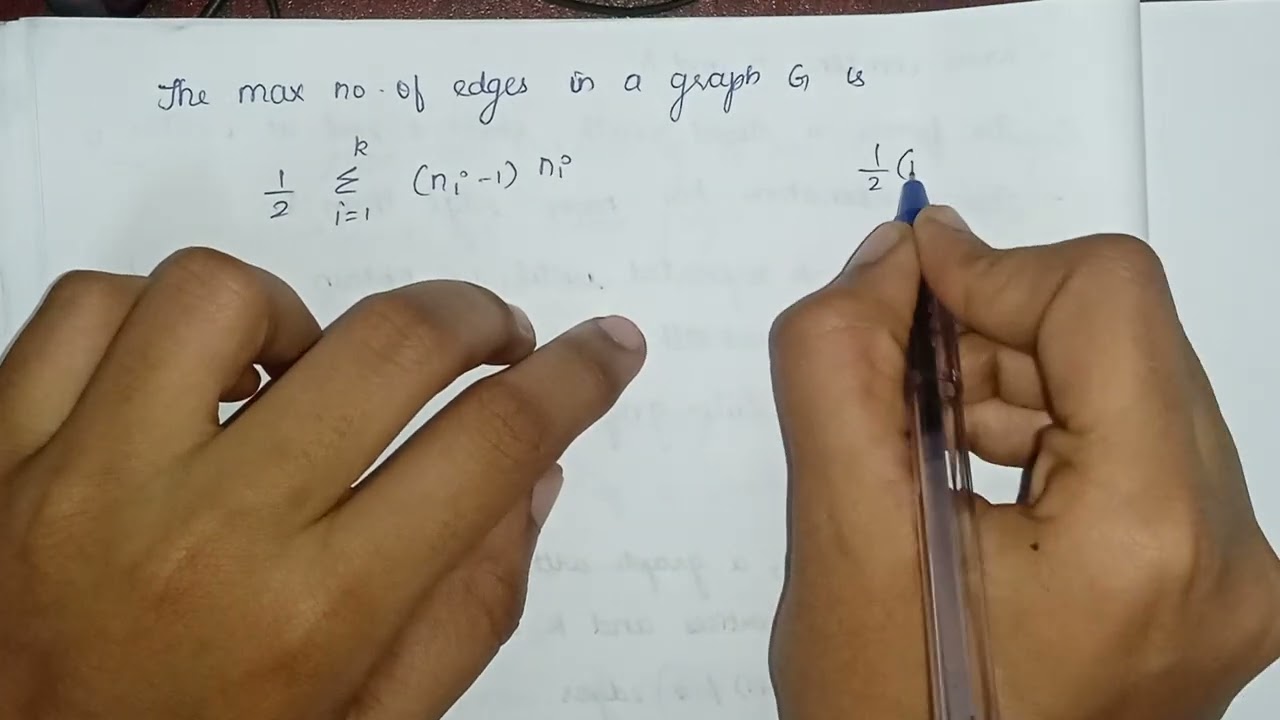 The max no. of edges in a graph G is
1/2 k Σ i=1 (ni -1) ni 1/2 (